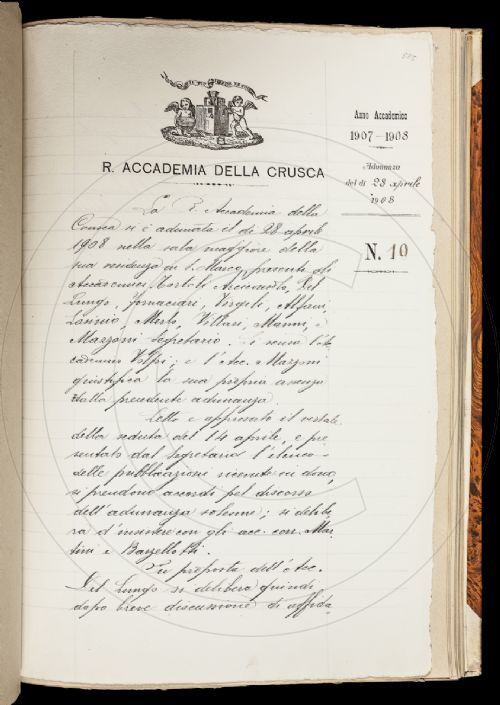 R. ACCADEMIA DELLA CRUSCA
Anno Accademico
1907-1908
Adunanza
del dì 28 aprile
1908
N. 10
La R. Accademia della
Crusca si è adunata il dì 28 aprile
1908 nella sala maggiore della
sua residenza in S. Marco, presenti gli
Accademici Tortoli, Arcicaconsolo, Del
Lungo, Fornaciari, Vergili, Alfani,
Zannio, Merlo, Villari, Manni, e
Mazzoni Segretario. È scusa l'Ac
cademico Volpi; e l'Acc. Mazzoni
giustifica la sua propria assenza
dalla precedente adunanza.
Letto e approvato il verbale
della seduta del 14 aprile, e pre
sentato dal Segretario l'elenco
delle pubblicazioni ricevute in dono,
si prendono accordi pel discorso
dell'adunanza solenne; si delibe
ra d'insistere con gli acc. corr. Mar
tini e Barzellotti.
Su proposta dell'Acc.
Del Lungo si delibera quindi,
dopo breve discussione di affida